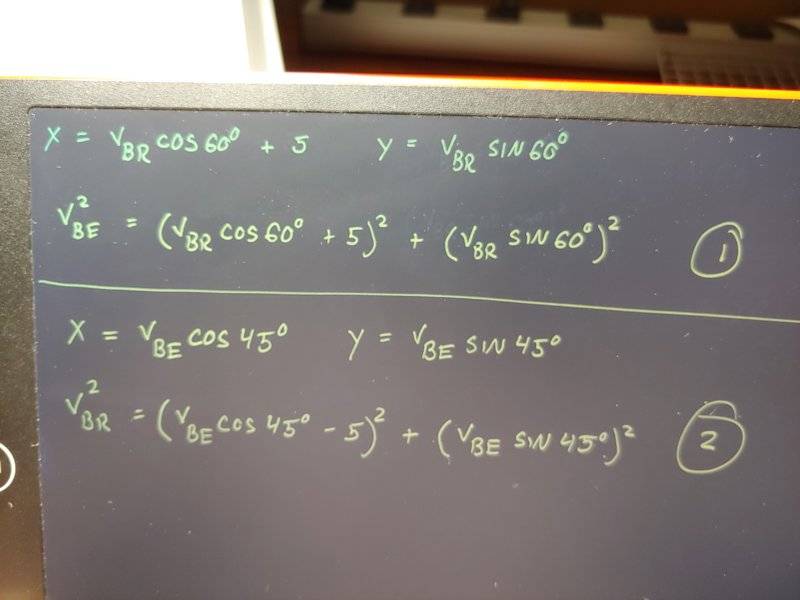 X = V_BR COS 60° + 5 Y = V_BR SIN 60°
V_BE² = (V_BR COS 60° + 5)² + (V_BR SIN 60°)² 1
X = V_BE COS 45° Y = V_BE SIN 45°
V_BR² = (V_BE COS 45° - 5)² + (V_BE SIN 45°)² 2